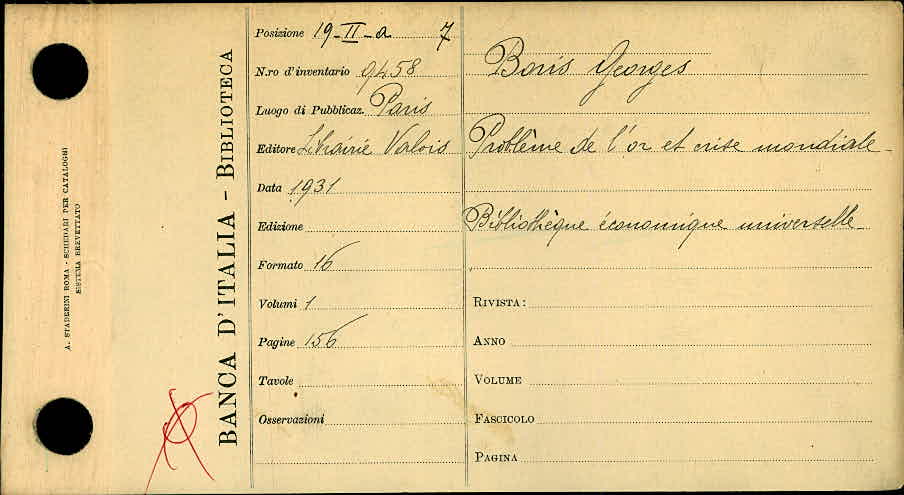 A. STADERINI ROMA - SCHEDARI PER CATALOGHI
SISTEMA BREVETTATO
BANCA D'ITALIA - BIBLIOTECA
Posizione 19-II-a 7
N.ro d'inventario 9458
Luogo di Pubblicaz. Paris
Editore Librairie Valois
Data 1931
Edizione
Formato 16
Volumi 1
Pagine 156
Tavole
Osservazioni
Boris Georges
Problème de l'or et crise mondiale
Bibliothèque économique universelle
RIVISTA:
ANNO
VOLUME
FASCICOLO
PAGINA